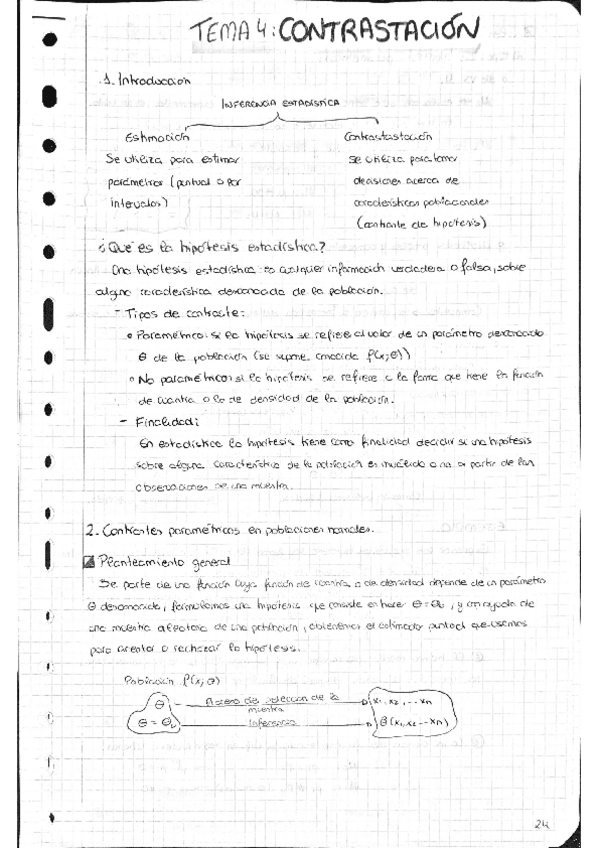 TEMA 4: CONTRASTACIÓN
1. Introducción
INFERENCIA ESTADÍSTICA
Estimación
Se utiliza para estimar
parámetros (puntual o por
intervalos)
Contrastación
se utiliza para tomar
decisiones acerca de
características poblacionales
(contraste de hipótesis)
¿Qué es la hipótesis estadística?
Una hipótesis estadística es cualquier información verdadera o falsa, sobre
alguna característica desconocida de la población.
- Tipos de contraste:
• Paramétrico: si la hipótesis se refiere al valor de un parámetro desconocido
θ de la población (se supone conocida f(x;θ))
• No paramétrico: si la hipótesis se refiere a la forma que tiene la función
de cuantía o la de densidad de la población.
- Finalidad:
En estadística la hipótesis tiene como finalidad decidir si una hipótesis
sobre alguna característica de la población es o no a partir de las
observaciones de una muestra.
2. Contrastes paramétricos en poblaciones normales.
Planteamiento general
Se parte de una función cuya función de cuantía o de densidad depende de un parámetro
θ desconocido, formulamos una hipótesis que consiste en hacer θ=θ₀, y con ayuda de
una muestra aleatoria de una población, obtenemos el estimador puntual que usamos
para aceptar o rechazar la hipótesis.
Población f(x;θ)
θ Proceso de selección de la muestra x₁, x₂, ... xn
θ = θ₀ Inferencia θ(x₁, x₂ ... xn)
24